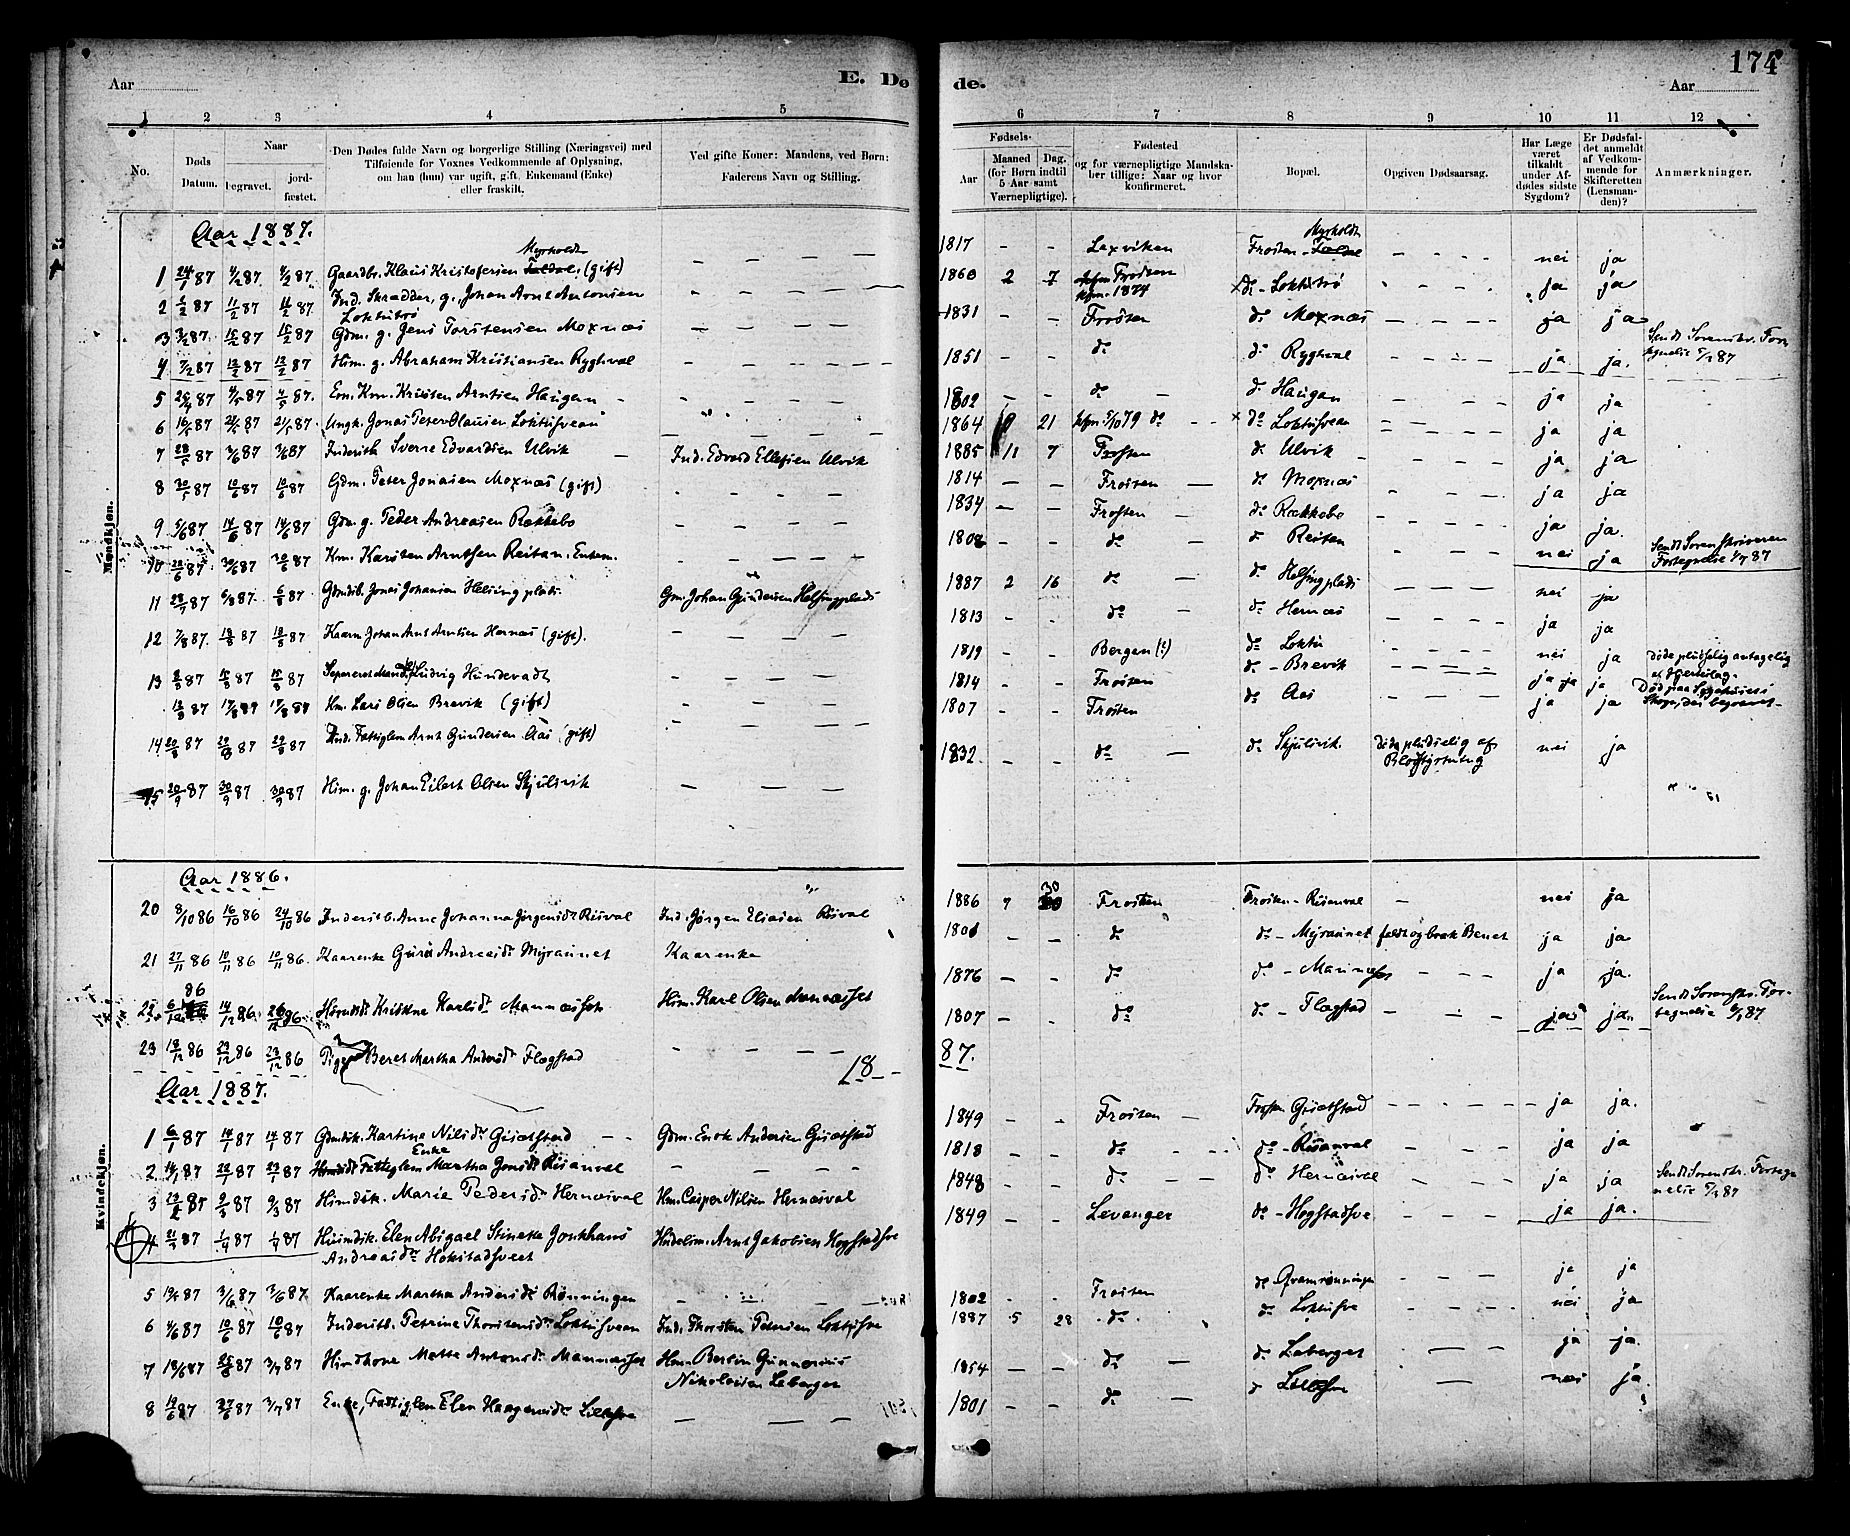 174
Aar E. Døde. Aar
1 2 3 4 5 6 7 8 9 10 11 12
No. Døds Datum. Naar begravet. jordfæstet. Den Dødes fulde Navn og borgerlige Stilling (Næringsvei) med Tilføiende for Voxnes Vedkommende af Oplysning, om han (hun) var ugift, gift, Enkemand (Enke) eller fraskilt. Ved gifte Koner: Mandens, ved Børn: Faderens Navn og Stilling. Fødsels- Aar Maaned Dag. (for Børn indtil 5 Aar samt Værnepligtige). Fødested og for værnepligtige Mandskaber tillige: Naar og hvor konfirmeret. Bopæl. Opgiven Dødsaarsag. Har Læge været tilkaldt under Afdødes sidste Sygdom? Er Dødsfaldet anmeldt af Vedkommende for Skifteretten (Lensmanden)? Anmærkninger.
Mandkjøn.
Aar 1887.
1 24/1 87 4/2 87 4/2 87. Gaardbr. Klaus Kristofersen Myrholdt (gift) — — — 1817 - - Laxviken Frosten - Myrholdt nei ja
2 87 11/2 87 11/2 87 Ind. Skrædder, g., Johan Arnt Antonsen Loktutrø 1860 2 7 Frosten 1874 do - Loktutrø ja ja
3 3/2 87. 15/2 87 15/2 87 Gdm. g. Jens Torstensen Moxnæs 1831 - - Frosten do Moxnæs ja ja
4 7/2 87 13/2 87 13/2 87 Hsm. g. Abraham Kristiansen Ryghval 1851 - - do do Ryghval ja ja. Sendt Sorenskr. Fortegnelse 87
5 87 4/5 87 4/5 87. Em. Km. Kristen Arntsen Haugan 1802 - - do do Haugan ja ja
6 16/5 87 21/5 87 21/5 87. Ungk. Jonas Peter Olausen Loktusvean 1864 21 79 do do Loktusvean ja ja
7 28/5 87 3/6 87 3/6 87 Inderstb. Sverre Edvardsen Ulvik Ind. Edvard Ellefsen Ulvik 1885 11 7 Frosten do Ulvik ja ja
8 30/5 87 10/6 87 10/6 87 Gdm. Peter Jonasen Moxnæs (gift) 1814 Frosten do Moxnæs ja ja
9 5/6 87 14/6 87 14/6 87 Gdm g. Peder Andreasen Rækkebo 1834 Frosten do Rækkebo ja ja.
10 20/6 87 30/6 87 30/6 87 Km. Karsten Arntsen Reitan. Enkem. do do Reitan nei ja Sendt Sorenskriveren Fortegnelse 87
11 28/7 87 6/8 87. 6/8 87 Gdmdsb. Jonas Johansen Helsingplads. Gm. Johan Gundersen Helsingplads 1887 2 16 do do Helsingplads nei ja
12 7/8 87. 18/8 87 18/8 87 Kaarm. Johan Arnt Arntsen Hernæs (gift). 1813 do do Hernæs ja ja
13 8/8 87 15/8 87 15/8 87 Ludvig Hundevadt 1819 Bergen (?) do Loktu nei ja Døde plutselig antagelig af Hjerteslag.
13/8 87 17/8 87 17/8 87 Km. Lars Olsen Brevik (gift) 1814 Frosten do - Brevik ja ja ja Død paa Sygehuset
14 20/8 87 29/8 87 29/8 87 Ind. Fattiglem Arnt Gundersen Aas (gift) 1807 Frosten do Aas ja ja
15 20/9 87 30/9 87 30/9 87 Hsm. g. Johan Eilert Olsen Skjulsvik 1832 do do Skjulsvik. Døde pludselig af Blodstyrtning nei ja
Kvindekjøn.
Aar 1886.
20 8/10 86 16/10 86 24/10 86 Inderstb. Anne Johanna Jørgensdt Risval Ind. Jørgen Eliasen Risval 1886 7 30 Frosten Frosten - Risanval nei ja
21 27/11 86 10/11 86 10/11 86. Kaarenke Guru Andreasdt Myraunet Kaarenke do do - Myraunet faldt og brak Benet ja ja
22 86 14/12 86. Kristine Karlsdt Mannæsset Hsm. Karl Olsen Mannæsset 1876 do do - Mannæsset ja ja.
23 18/12 86 23/12 86 23/12 86 Pige Beret Martha Andersdt Flægstad 1807 do do - Flægstad ja ja. Sendt Sorenskr. Fortegnelse 87
Aar 1887. 18 87.
1 6/1 87 14/1 87 14/1 87 Gdmdsk. Kartine Nilsdt Gisætstad Gdm. Enok Andersen Gisætstad 1849 Frosten Frosten Gisætstad ja ja.
2 14/1 87 22/1 87 87 Enke Fattiglem Martha Jonsdt Risanval 1818 do do - Risanval ja ja
3 87 87 87 Hsmdsk. Marie Pedersdt Hernæsval Hm. Casper Nilsen Hernæsval 1848 do do Hernæsval ja ja Sendt Sorenskr. Fortegnelse 87
4 87 1/4 87 1/4 87 Elen Abigael Stinette Jonkhans Andreasdt Arnt Jakobsen Hogstadsve 1849 Levanger do - Hogstadsve ja ja.
5 87 3/6 87 3/6 87 Kaarenke Martha Andersdt Rønningen 1802 Frosten do Qvamrønningen ja ja
6 4/6 87 10/6 87 10/6 87 Inderstb. Petrine Thorstensdt Loktusvean Ind. Thorsten Petersen Loktusve 1887 5 28 do. do Loktusve nei ja
7 18/6 87 25/6 87 3/7 87 Mette Antonsdt Mannæsset Hm. Berlin Gunnerius Nikolaisen Laberget 1854 do do Laberget ja ja.
8 87 27/6 87 3/7 87 Enke, Fattiglem Elen Haagensdt Lillesve 1801 do do Lillesve nei ja